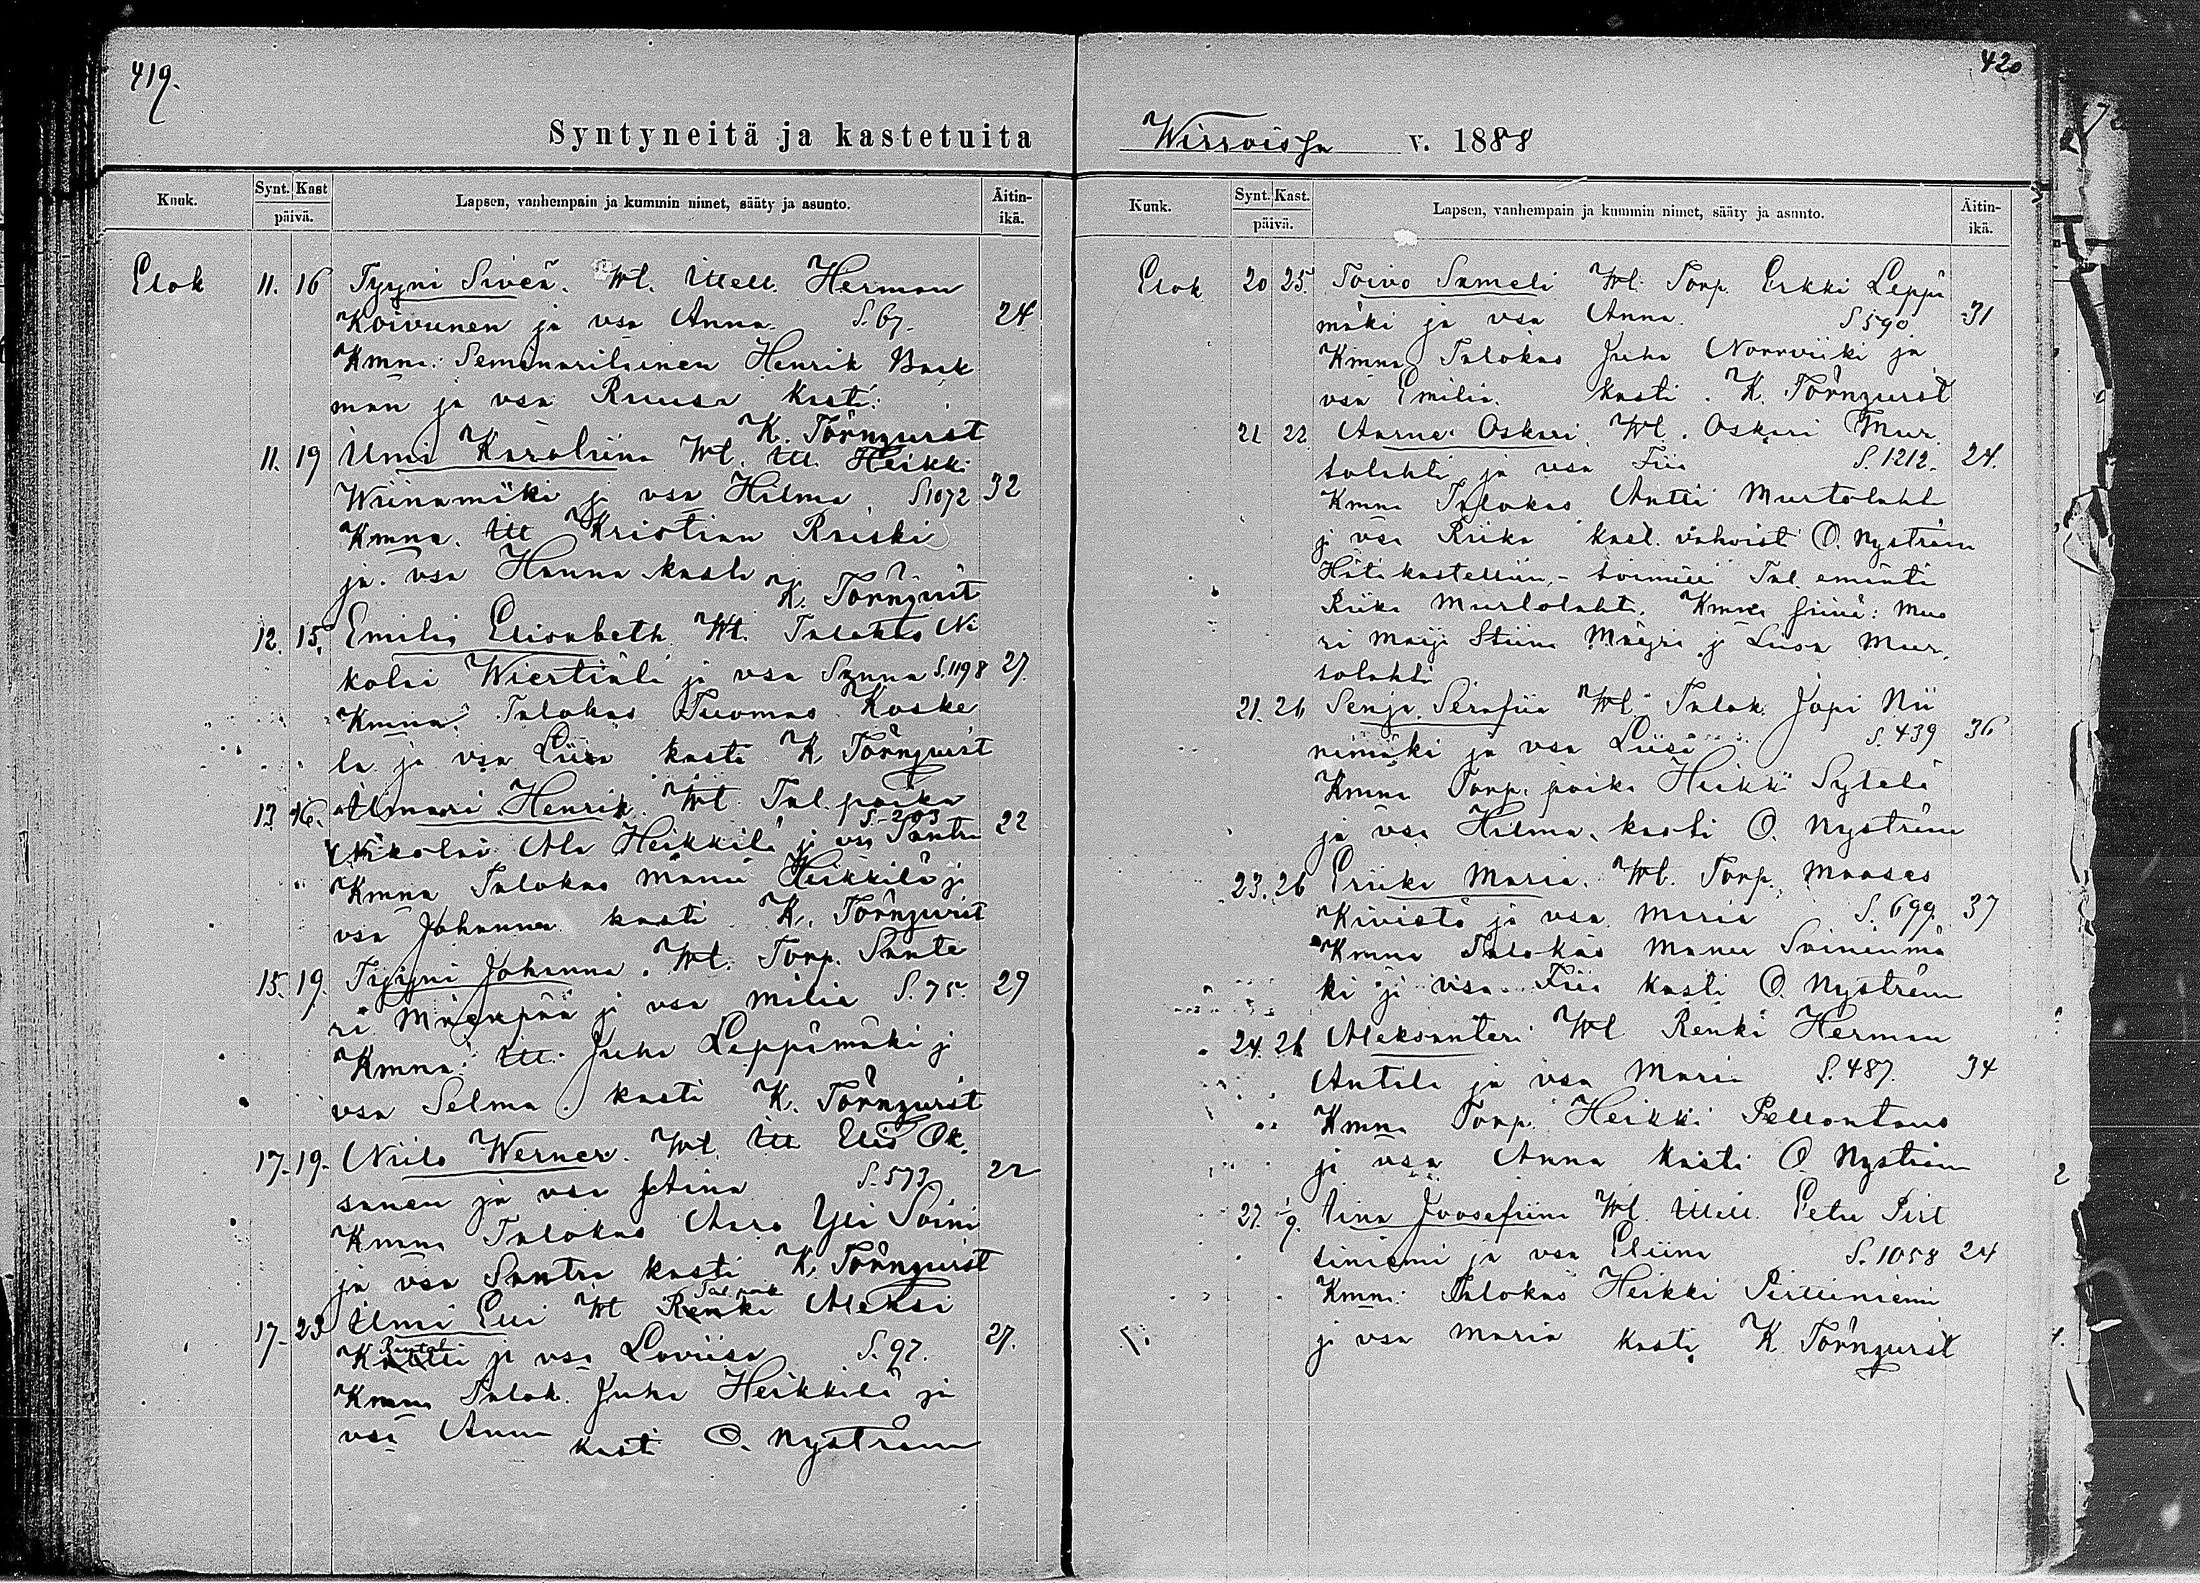 419.
Syntyneitä ja kastetuita
Kuuk.
Synt. Kast
päivä.
Lapsen, vanhempain ja kummin nimet, sääty ja asunto.
Äitin-
ikä.
Elok 11. 16 Tyyni Siveä. Wt. Itsell. Herman
Koivunen ja vsa Anna. S. 67. 24
Kmna: Seminarilainen Henrik Back
man ja vsa Ruusa kasti:
K. Törnqvist
11. 19 Umi Karoliina Wt. Itll. Heikki
Wiinamäki ja vsa Hilma S. 1072 32
Kmna. Itll Kristian Raiski
ja vsa Hanna kasti
K. Törnqvist
12. 15. Emilia Elisabeth Wt. Talokas Ni
kolai Wiertiälä ja vsa Sanna S. 1198 27.
Kmna. Talokas Tuomas Koske
la ja vsa Liisa kasti K. Törnqvist
13. 16. Ilmari Henrik. Wt. Tal. poika
S. 203
Nikolai Ala Heikkilä ja vsa Santra 22
Kmna Talokas Manu Heikkilä ja
vsa Johanna kasti K. Törnqvist
15. 19. Tyyni Johanna. Wt. Torp. Sante
ri Mäenpää ja vsa Milia S. 75. 29
Kmna: Itll. Juha Leppämäki ja
vsa Selma. kasti K. Törnqvist
17. 19. Niilo Werner. Wt. Itll Elis Ok
sanen ja vsa Aina S. 573. 22
Kmna Talokas Aaro Yli Soini
ja vsa Santra kasti K. Törnqvist
Tal. poik
17. 23 Ilmi Elli Wt Renki Aleksi
ja vsa Loviisa S. 97. 27.
Kmna Talok. Juha Heikkilä ja
vsa Anna
kasti O. Nyström
420
Wirroissa v. 1888
Kuuk.
Synt. Kast.
päivä.
Lapsen, vanhempain ja kummin nimet, sääty ja asunto.
Äitin-
ikä.
Elok 20 25. Toivo Sameli Wt. Torp. Erkki Leppä
mäki ja vsa Anna. S 590 31
Kmna Talokas Juha Norrviiki ja
vsa Emilia. kasti. K. Törnqvist
21 22 Aarne Oskari. Wt. Oskari Mur
tolahti ja vsa Fiia S. 1212. 24.
Kmna Talokas Antti Murtolahti
ja vsa Riika kast. vahvisti O. Nyström
Hätäkastettiin, - toimitti Tal. emäntä
Riika Murtolahti. Kmna
ri Maija Stiina Mäyrä ja Liisa Mur
tolahti
21. 26 Senja Serafiia Wt. Talok. Jopi Nii
nimäki ja vsa Liisa S. 439 36
Kmna Torp. poika Heikki Sytelä
ja vsa Hilma. kasti O. Nyström
23. 26 Eriika Maria. Wt. Torp. Maases
Kivistö ja vsa Maria S. 699 37
Kmna Talokas Manu Soininmä
ki ja vsa Fiia kasti O. Nyström
24. 26 Aleksanteri Wt Renki Herman
Antila ja vsa Maria S. 487. 34
Kmna Torp. Heikki Pellontaus
ja vsa Anna kasti O. Nyström
27. 1/9. Aina Joosefiina Wt. Itsell. Petu Pirt
tiniemi ja vsa Eliina S. 1058 24
Kmna: Talokas Heikki Pirttiniemi
ja vsa Maria kasti K. Törnqvist